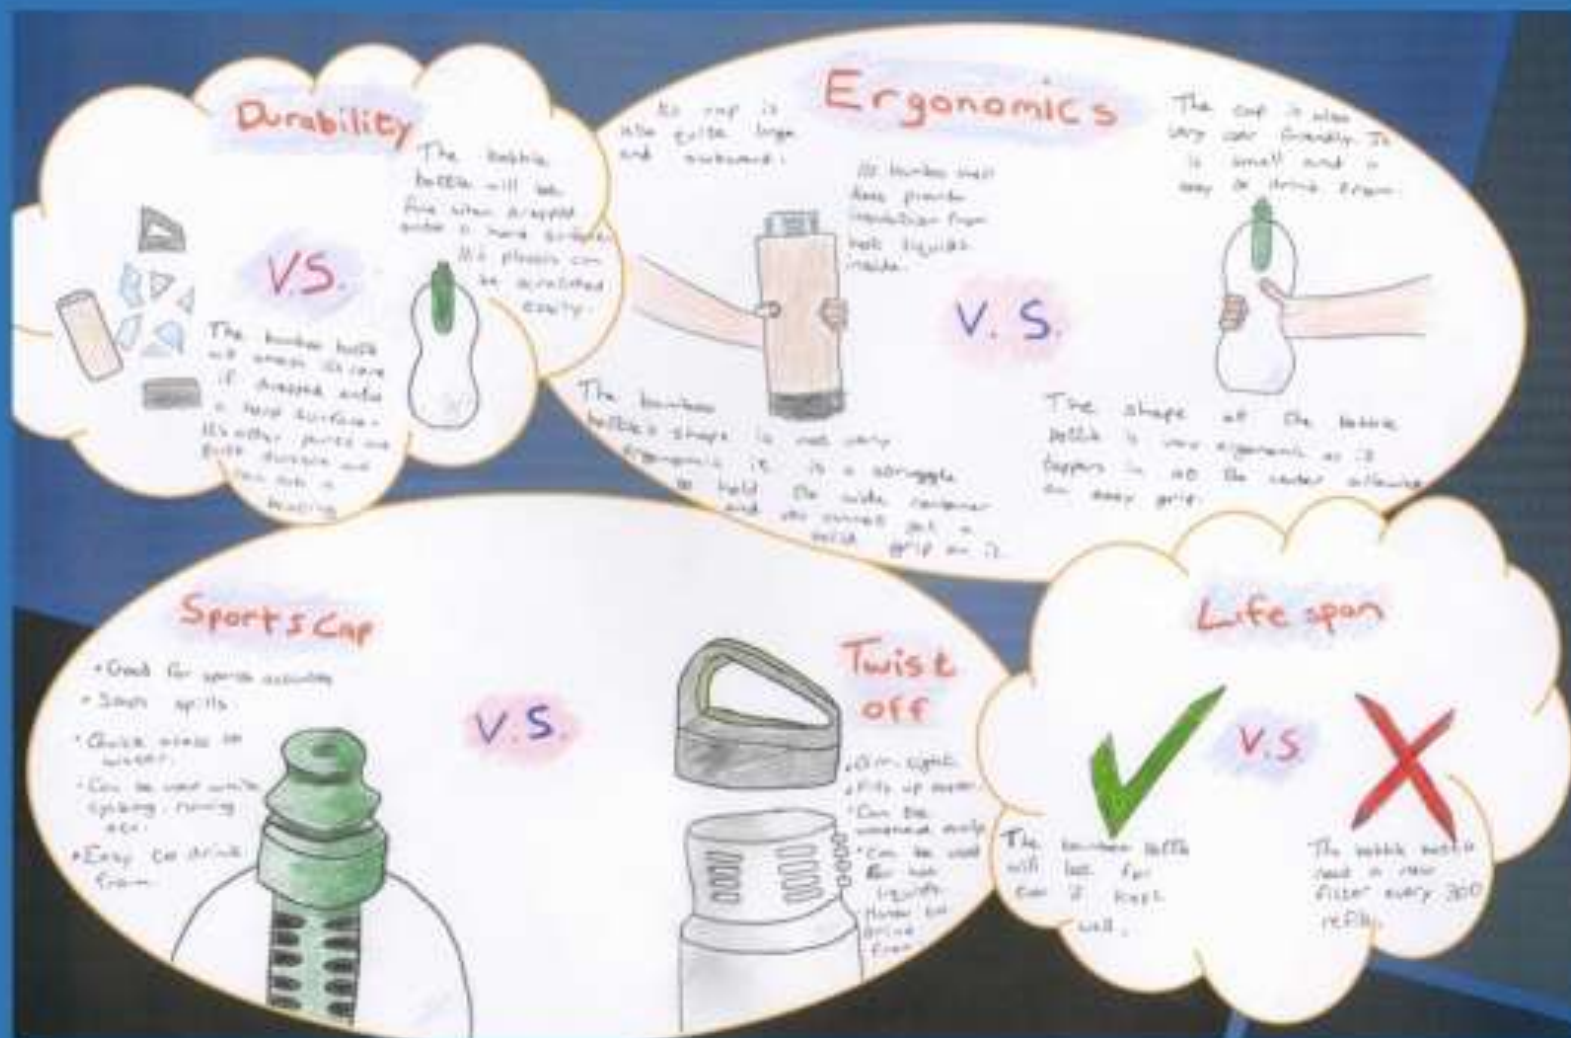 Durability
The bobble
bottle will be
fine when dropped
onto a hard surface.
It's plastic can
be scratched
easily.
V.S.
The bamboo bottle
will smash its core
if dropped onto
a hard surface.
It's other parts are
quite durable and
can take a
beating
Ergonomics
Its cap is
also quite large
and awkward.
Its bamboo shell
does provide
insulation from
hot liquids
inside.
The cap is also
very user friendly. It
is small and is
easy to drink from.
V.S.
The bamboo
bottle's shape is not very
ergonomic it is a struggle
to hold the wide container
and you cannot get a
solid grip on it.
The shape of the bobble
bottle is very ergonomic as it
tappers in at the center allowing
an easy grip.
Sports Cap
• Good for sports activities
• Stops spills
• Quick access to
water.
• Can be used while
cycling, running
ect.
• Easy to drink
from.
V.S.
Twist
off
• Air tight
• Fills up easier.
• Can be
• Can be used
for hot
liquids.
Harder to
drink
from
Life span
V.S.
The bamboo bottle
will last for
ever if kept
well.
The bobble bottle
need a new
filter every 300
refills.